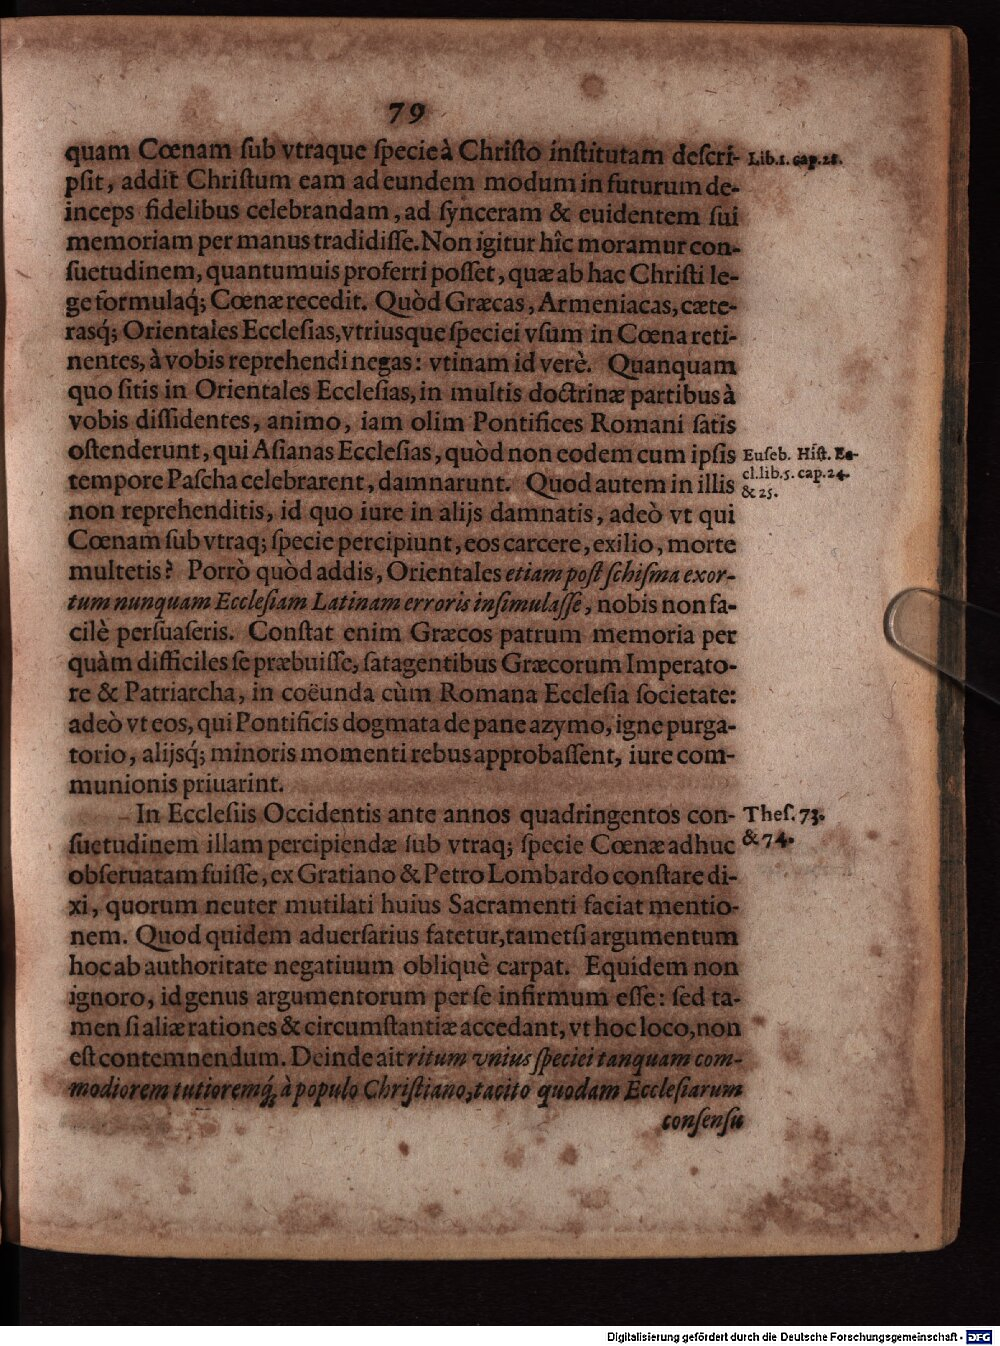 79
quam Cœnam ſub vtraque ſpecie à Chriſto inſtitutam deſcri- Lib.1. cap.21.
pſit, addit Chriſtum eam ad eundem modum in futurum de-
inceps fidelibus celebrandam, ad ſynceram & euidentem ſui
memoriam per manus tradidiſſe. Non igitur hîc moramur con-
ſuetudinem, quantumuis proferri poſſet, quæ ab hac Chriſti le-
ge formulaq́; Cœnæ recedit. Quòd Græcas, Armeniacas, cæte-
rasq́; Orientales Eccleſias, vtriusque ſpeciei vſum in Cœna reti-
nentes, à vobis reprehendi negas: vtinam id verè. Quanquam
quo ſitis in Orientales Eccleſias, in multis doctrinæ partibus à
vobis diſſidentes, animo, iam olim Pontifices Romani ſatis
oſtenderunt, qui Aſianas Eccleſias, quòd non eodem cum ipſis Euſeb. Hiſt. Ec-
tempore Paſcha celebrarent, damnarunt. Quod autem in illis cl.lib.5. cap.24.
& 25.
non reprehenditis, id quo iure in alijs damnatis, adeò vt qui
Cœnam ſub vtraq; ſpecie percipiunt, eos carcere, exilio, morte
multetis? Porrò quòd addis, Orientales etiam poſt ſchiſma exor-
tum nunquam Eccleſiam Latinam erroris inſimulaſſe, nobis non fa-
cilè perſuaſeris. Conſtat enim Græcos patrum memoria per
quàm difficiles ſe præbuiſſe, ſatagentibus Græcorum Imperato-
re & Patriarcha, in coëunda cùm Romana Eccleſia ſocietate:
adeò vt eos, qui Pontificis dogmata de pane azymo, igne purga-
torio, alijsq́; minoris momenti rebus approbaſſent, iure com-
munionis priuarint.
In Eccleſiis Occidentis ante annos quadringentos con- Theſ. 73.
ſuetudinem illam percipiendæ ſub vtraq; ſpecie Cœnæ adhuc & 74.
obſeruatam fuiſſe, ex Gratiano & Petro Lombardo conſtare di-
xi, quorum neuter mutilati huius Sacramenti faciat mentio-
nem. Quod quidem aduerſarius fatetur, tametſi argumentum
hoc ab authoritate negatiuum obliquè carpat. Equidem non
ignoro, id genus argumentorum per ſe infirmum eſſe: ſed ta-
men ſi aliæ rationes & circumſtantiæ accedant, vt hoc loco, non
eſt contemnendum. Deinde ait ritum vnius ſpeciei tanquam com-
modiorem tutioremq́;, à populo Chriſtiano, tacito quodam Eccleſiarum
conſenſu
Digitalisierung gefördert durch die Deutsche Forschungsgemeinschaft - DFG